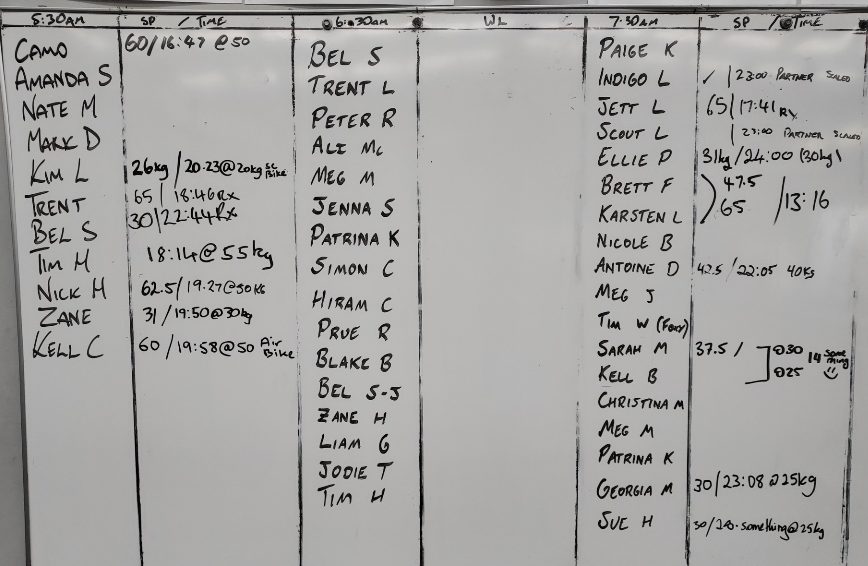 5:30AM SP / TIME
CAMO 60/16:47 @50
AMANDA S
NATE M
MARK D
KIM L 26kg / 20.23@20kg SC Bike
TRENT 65 / 18:46 RX
BEL S 30/22:44 RX
TIM H 18:14 @ 55kg
NICK H 62.5/19.27@50KG
ZANE 31/19:50@30kg
KELL C 60/19:58@50 Air Bike
6:30AM WL
BEL S
TRENT L
PETER R
ALI Mc
MEG M
JENNA S
PATRINA K
SIMON C
HIRAM C
PRUE R
BLAKE B
BEL S-J
ZANE H
LIAM G
JODIE T
TIM H
7:30AM SP / TIME
PAIGE K
INDIGO L ✓ / 23:00 PARTNER SCALED
JETT L 65/17:41 RX
SCOUT L / 23:00 PARTNER SCALED
ELLIE P 31kg/24:00 (30kg)
BRETT F 47.5
KARSTEN L 65 /13:16
NICOLE B
ANTOINE D 42.5 / 22:05 40KG
MEG J
TIM W (Foxy)
SARAH M 37.5 / @30 14 some thing
KELL B @25 ☺
CHRISTINA M
MEG M
PATRINA K
GEORGIA M 30/23:08 @25kg
SUE H 30/ something@25kg